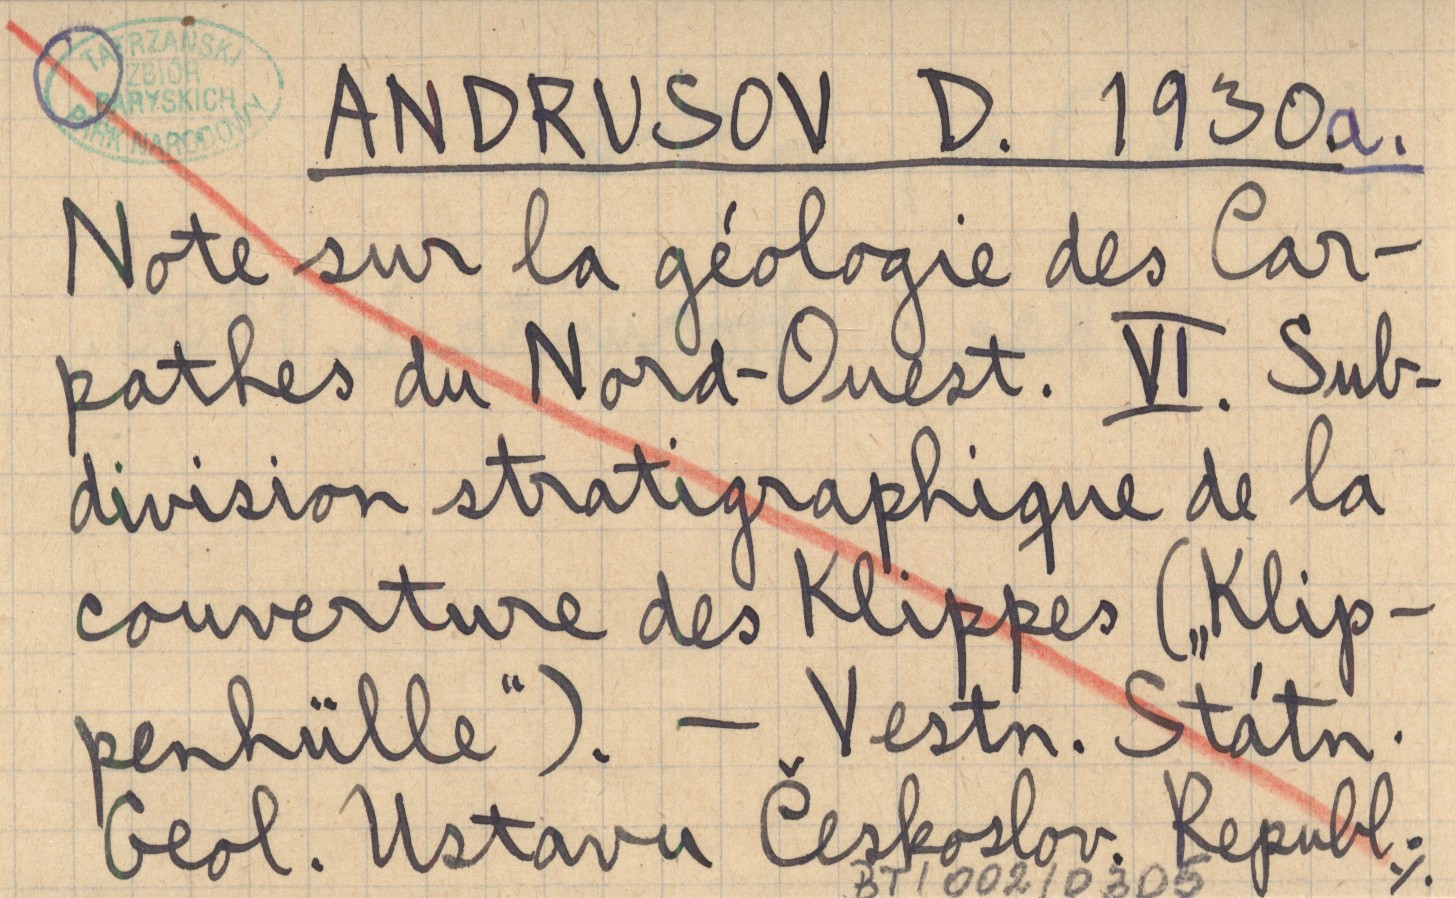 TATRZAŃSKI
ZBIÓR
PARYSKICH
PARK NARODOWY
ANDRUSOV D. 1930a.
Note sur la géologie des Car-
pathes du Nord-Ouest. VI. Sub-
division stratigraphique de la
couverture des Klippes („Klip-
penhülle“). — Vestn. Státn.
Geol. Ustavu Českoslov. Republ. ./.
BT/002/0305